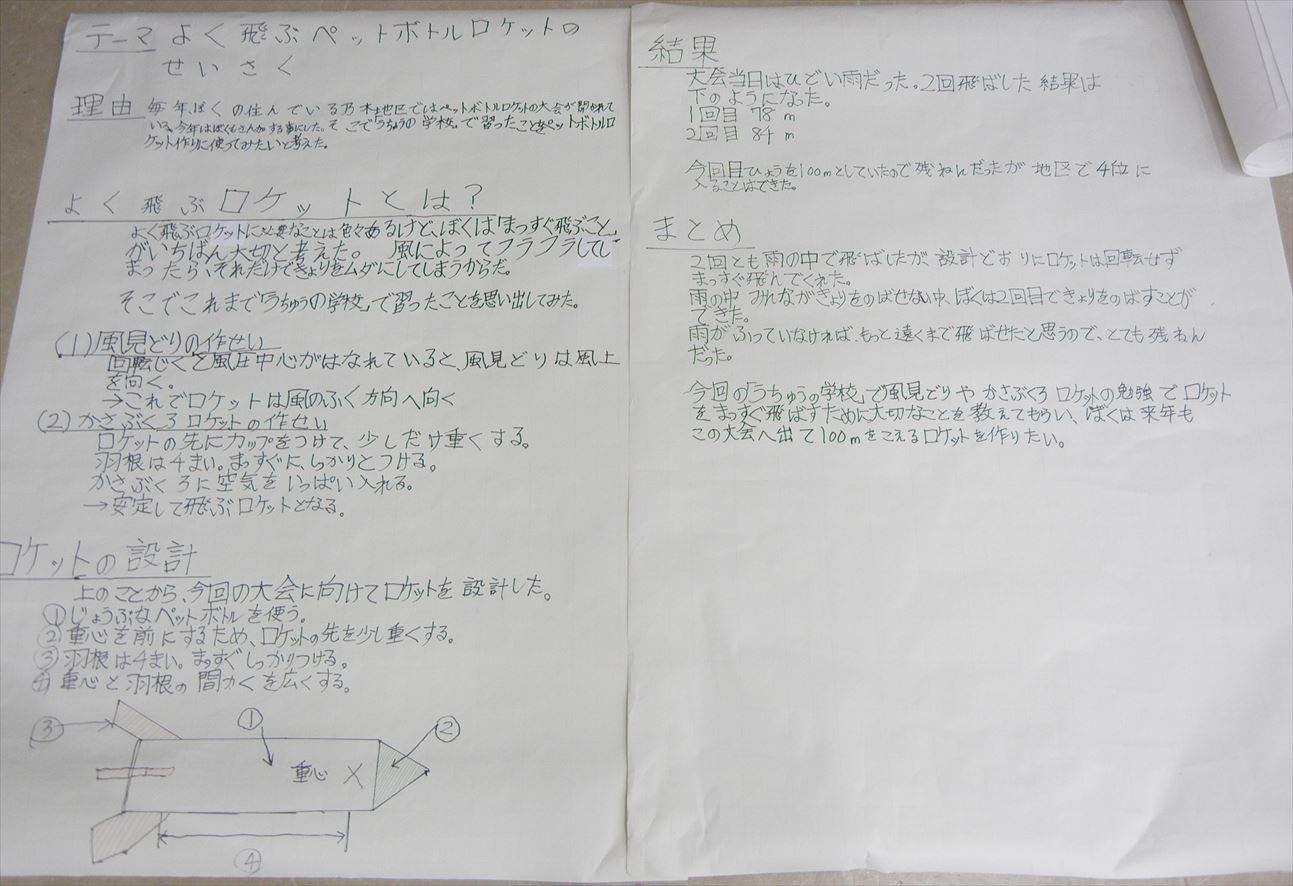 テーマ よく飛ぶペットボトルロケットの
せいさく
理由 毎年、ぼくの住んでいる乃木地区ではペットボトルロケットの大会が開かれて
いる。今年はぼくもさんかする事にした。そこで「うちゅうの学校」で習ったことをペットボトルロ
ケット作りに使ってみたいと考えた。
よく飛ぶロケットとは?
よく飛ぶロケットに必要なことは色々あるけど、ぼくは「まっすぐ飛ぶこと」
がいちばん大切と考えた。 風によってフラフラしてし
まったら、それだけできょりをムダにしてしまうからだ。
そこでこれまで「うちゅうの学校」で習ったことを思い出してみた。
(1)風見どりの作せい
回転じくと風圧中心がはなれていると、風見どりは風上
を向く。
→これでロケットは風のふく方向へ向く
(2)かさぶくろロケットの作せい
ロケットの先にカップをつけて、少しだけ重くする。
羽根は4まい。まっすぐに、しっかりとつける。
かさぶくろに空気をいっぱい入れる。
→安定して飛ぶロケットとなる。
ロケットの設計
上のことから、今回の大会に向けてロケットを設計した。
①じょうぶなペットボトルを使う。
②重心を前にするため、ロケットの先を少し重くする。
③羽根は4まい。まっすぐしっかりつける。
④重心と羽根の間かくを広くする。
③ ① ②
重心 X
④
結果
大会当日はひどい雨だった。2回飛ばした結果は
下のようになった。
1回目 78 m
2回目 84 m
今回目ひょうを100mとしていたので残ねんだったが地区で4位に
入ることはできた。
まとめ
2回とも雨の中で飛ばしたが、設計どおりにロケットは回転せず
まっすぐ飛んでくれた。
雨の中 みんながきょりをのばせない中、ぼくは2回目できょりをのばすことが
できた。
雨がふっていなければ、もっと遠くまで飛ばせたと思うので、とても残ねん
だった。
今回の「うちゅうの学校」で風見どりやかさぶくろロケットの勉強でロケット
をまっすぐ飛ばすために大切なことを教えてもらい、ぼくは来年も
この大会へ出て100mをこえるロケットを作りたい。